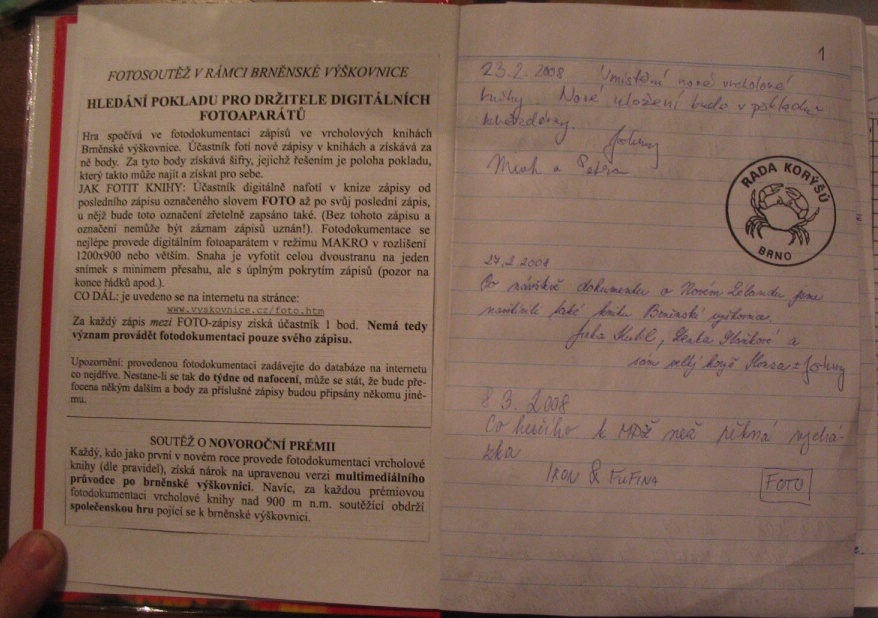 FOTOSOUTĚŽ V RÁMCI BRNĚNSKÉ VÝŠKOVNICE
HLEDÁNÍ POKLADU PRO DRŽITELE DIGITÁLNÍCH
FOTOAPARÁTŮ
Hra spočívá ve fotodokumentaci zápisů ve vrcholových knihách
Brněnské výškovnice. Účastník fotí nové zápisy v knihách a získává za
ně body. Za tyto body získává šifry, jejichž řešením je poloha pokladu,
který takto může najít a získat pro sebe.
JAK FOTIT KNIHY: Účastník digitálně nafotí v knize zápisy od
posledního zápisu označeného slovem FOTO až po svůj poslední zápis,
u nějž bude toto označení zřetelně zapsáno také. (Bez tohoto zápisu a
označení nemůže být záznam zápisů uznán!). Fotodokumentace se
nejlépe provede digitálním fotoaparátem v režimu MAKRO v rozlišení
1200x900 nebo větším. Snaha je vyfotit celou dvoustranu na jeden
snímek s minimem přesahu, ale s úplným pokrytím zápisů (pozor na
konce řádků apod.).
CO DÁL: je uvedeno se na internetu na stránce:
www.vyskovnice.cz/foto.htm
Za každý zápis mezi FOTO-zápisy získá účastník 1 bod. Nemá tedy
význam provádět fotodokumentaci pouze svého zápisu.
Upozornění: provedenou fotodokumentaci zadávejte do databáze na internetu
co nejdříve. Nestane-li se tak do týdne od nafocení, může se stát, že bude pře-
focena někým dalším a body za příslušné zápisy budou připsány někomu jiné-
mu.
SOUTĚŽ O NOVOROČNÍ PRÉMII
Každý, kdo jako první v novém roce provede fotodokumentaci vrcholové
knihy (dle pravidel), získá nárok na upravenou verzi multimediálního
průvodce po brněnské výškovnici. Navíc, za každou prémiovou
fotodokumentaci vrcholové knihy nad 900 m n.m. soutěžící obdrží
společenskou hru pojící se k brněnské výškovnici.
1
23.2. 2008 Umístění nové vrcholové
knihy. Nové uložení bude v pokladně
hvězdárny.
a Petra
RADA KORÝŠŮ
BRNO
27.2.2008
Po návštěvě dokumentu o Novém Zélandu jsme
navštívili také knihu Brněnské výškovnice.
a
8.3. 2008
Co lepšího k MDŽ než pěkná vychá-
zka
IRON & FUFINA
FOTO